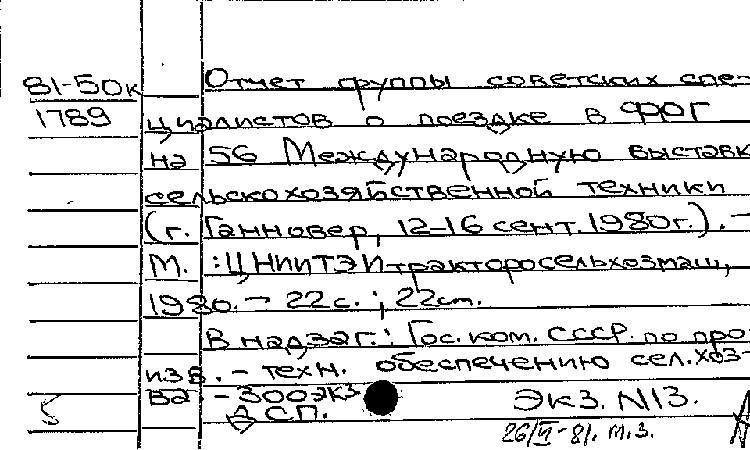 81-50к
1789
Отчет группы советских спе-
циалистов о поездке в ФРГ
на 56 Международную выставк
сельскохозяйственной техники
(г. Ганновер, 12-16 сент. 1980г.). -
М. : ЦНИИТЭИтракторосельхозмаш,
1980. - 22с. ; 22см.
В надзаг.: Гос. ком. СССР по про-
изв. - техн. обеспечению сел. хоз-
ва - 300экз.
ДСП.
5
Экз. N13.
26/VI-81. м.з.